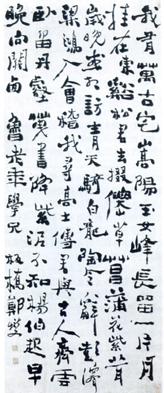 我有萬古宅嵩陽玉女峰長留一片月
挂在東谿松君去掇僊草菖蒲花紫茸
歲晚或相訪青天騎白龍陶令辭彭澤
梁鴻入會稽我尋高士傳君與古人齊雲
臥留丹壑天書降紫泥不知楊伯起早
晚向關西 魯老年學兄 板橋鄭燮